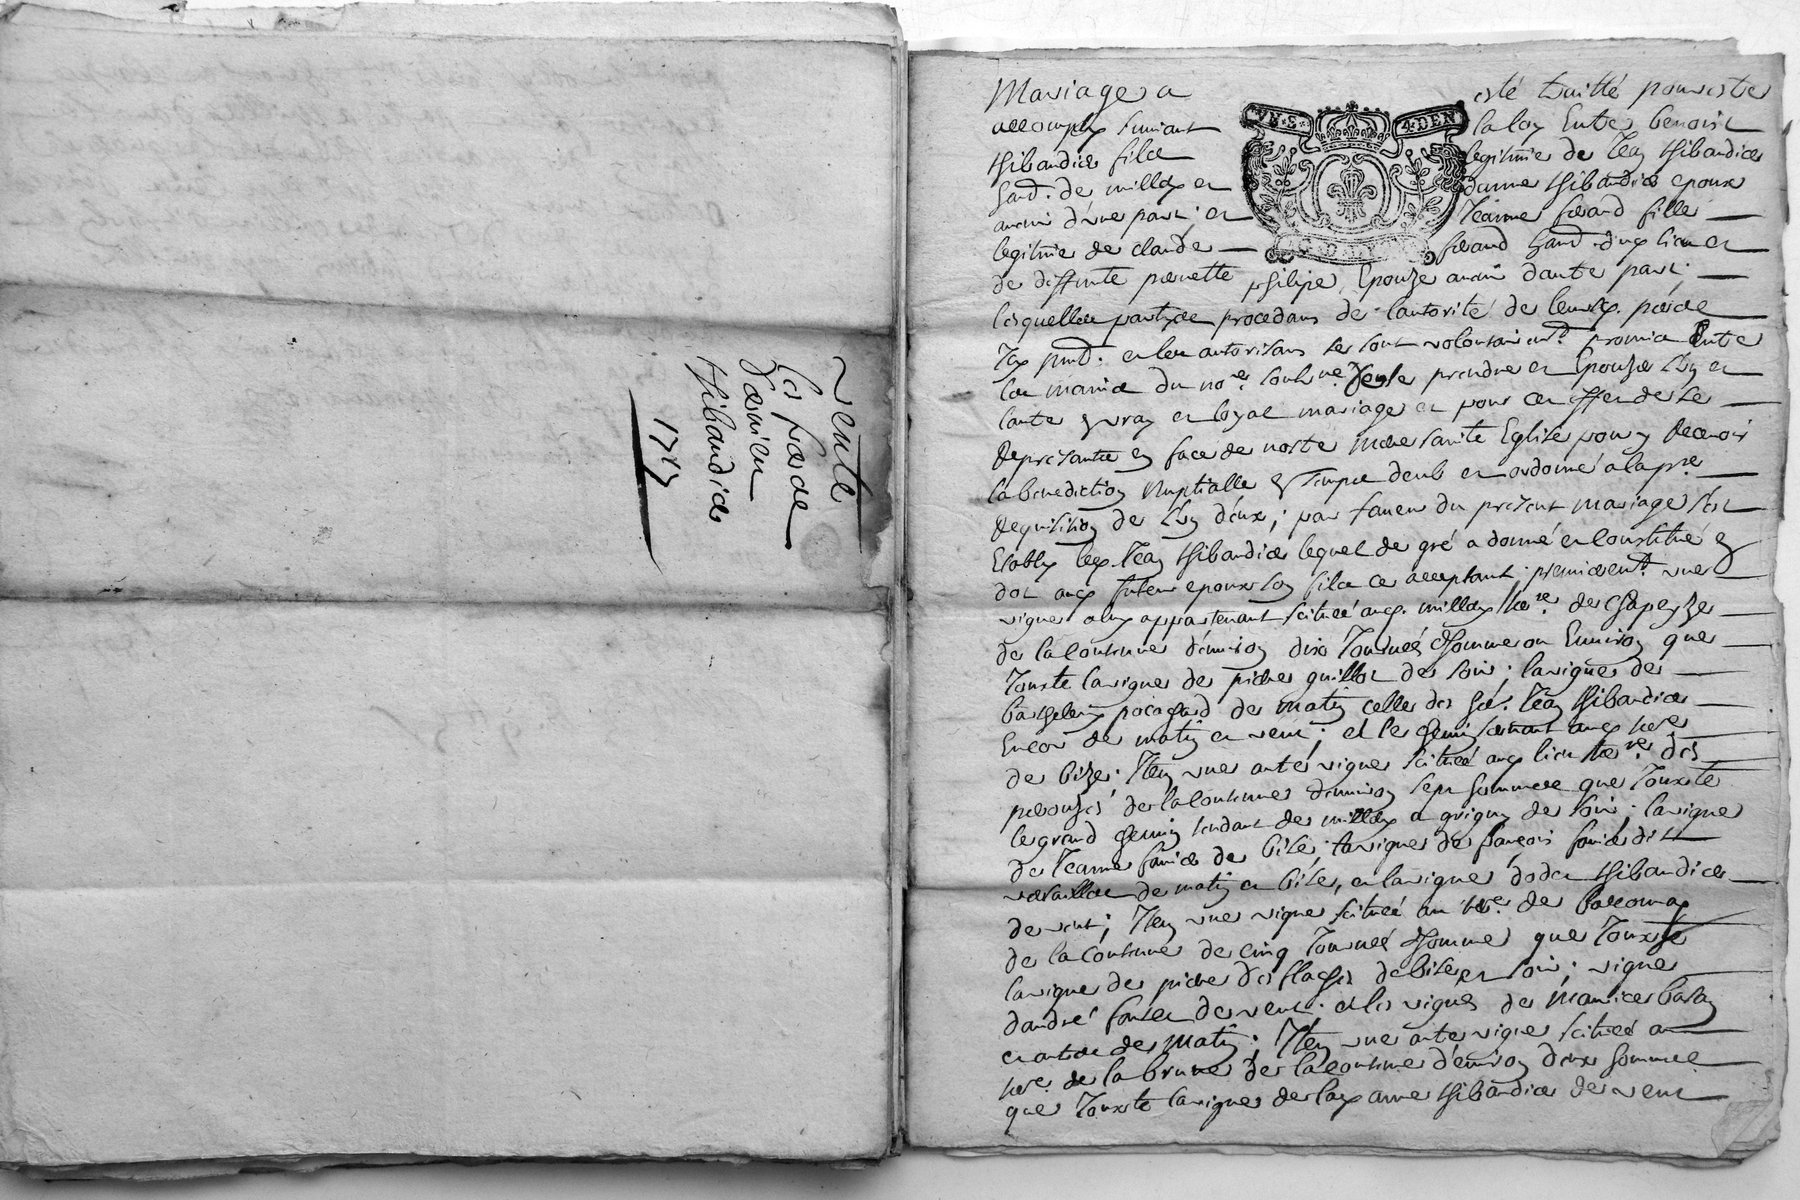 Vente
les frere
Thibaudier
1717
Mariage a esté traitté pour estre
accomply suivant la loy Entre benoist
thibaudier fils legitime de Jean thibaudier
hand. de millery et anne thibaudier epoux
avenir d'vne part; et Jeanne ferand fille
legitime de claude ferand hand. du lieu et
de deffunte pernette philipe, Epouze avenir dautre part;
lesquelles partyes procedans de l'autorité de leurs peres
Icy pnt. et les autorisans se sont volontairemt. promis Entre
les mains du nore. soubsne. de se prendre et Epouzer L'un et
lautre en vray et loyal mariage et pour cet effet de se
representer en face de nostre mere sainte Eglise pour y recevoir
la benediction Nuptialle en temps deub et ordonné a la pre
requisition de L'un d'eux; par faveur du present mariage s'est
Etably led. Jean thibaudier lequel de gré a donné et constitué en
dot aud. futur epoux son fils ce acceptant; premieremt. vne
vigne a luy appartenant scituée aud. millery tre. de
de la contenue d'environ dix Journées d'homme ou Environ que
Jouxte la vigne de pierre guillot de soir; la vigne de
barthelemy de matin celle de Jean thibaudier
Encor de matin et vent; et le chemin tendant
de bize; Item vne autre vigne scituée aud. lieu tre. des
de la contenue d'environ sept hommées que Jouxte
le grand chemin tendant de millery a grigny de soir; la vigne
de Jeanne de bise; la vigne de françois dit
de matin et bise, et la vigne thibaudier
de vent; Item vne vigne scituée au tre. de
de la contenue de cinq Journées d'homme que Jouxte
la vigne de pierre de bise et soir; vigne
d'andré de vent; et les vignes de
et autre de matin; Item vne autre vigne scituée au
tre. de la brune de la contenue d'environ deux hommées
que Jouxte la vigne de lad. anne thibaudier de vent